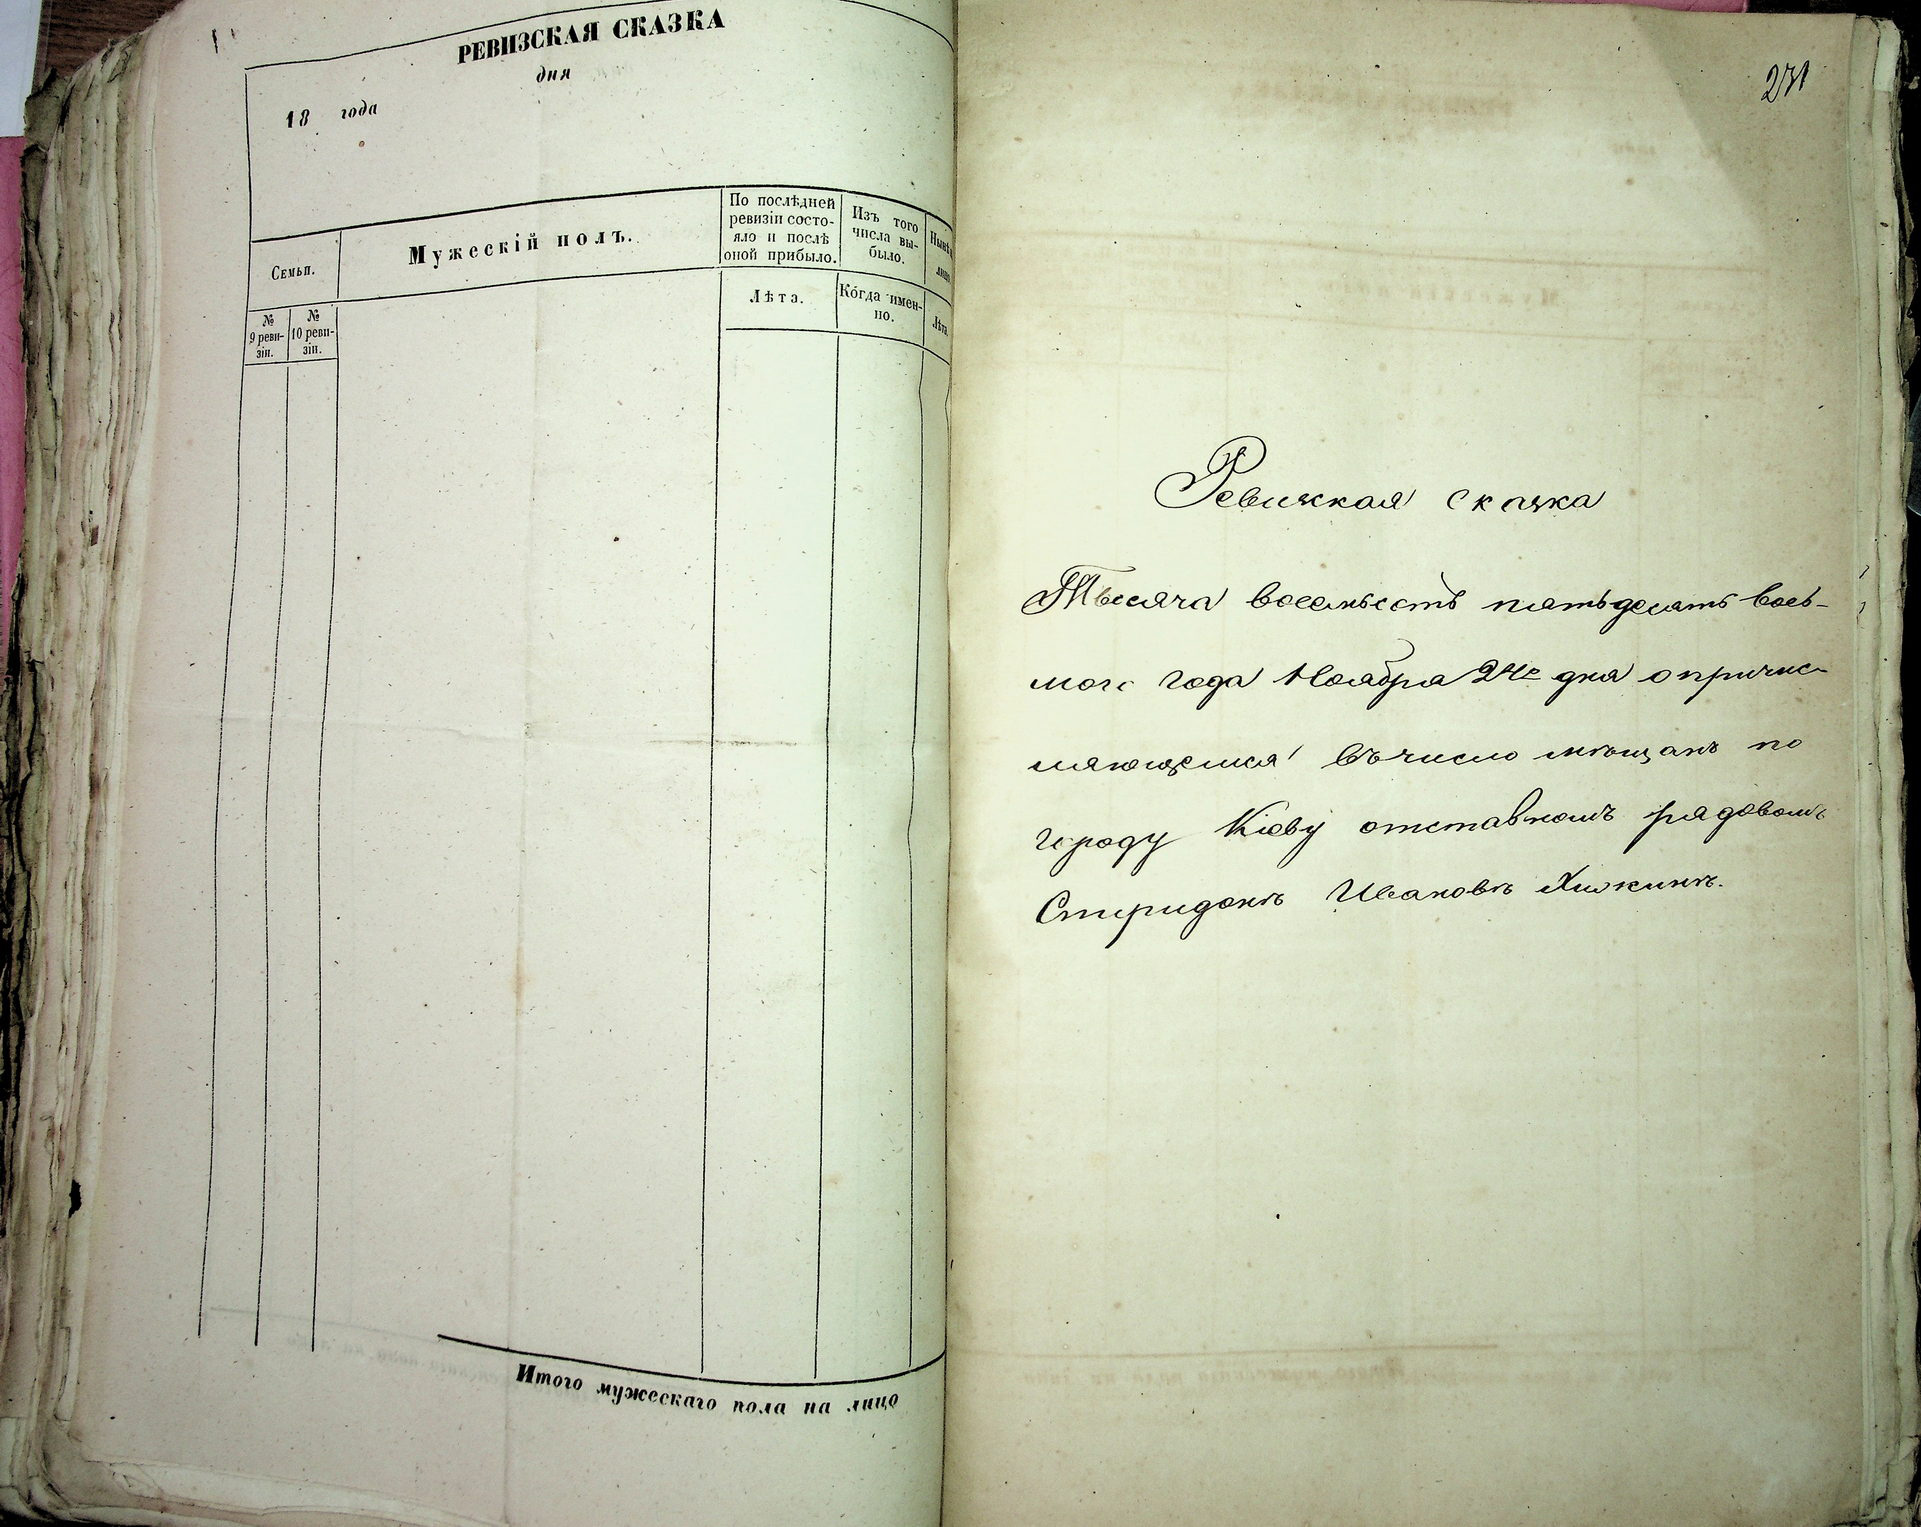 РЕВИЗСКАЯ СКАЗКА
дня
18 года
Семьи.
Мужескій полъ.
По послѣдней
ревизіи состо-
яло и послѣ
оной прибыло.
Изъ того
числа вы-
было.
№
9 реви-
зіи.
№
10 реви-
зіи.
Лѣта.
Когда имен-
но.
Лѣта.
Итого мужескаго пола на лицо
231
Ревизкая сказка
Тысяча восемьсотъ пятьдесятъ вось-
мого года Ноября 24го дня о причис-
ляющемся въ число мѣщанъ по
городу Кіеву отставномъ рядовомъ
Спиридонѣ Ивановѣ